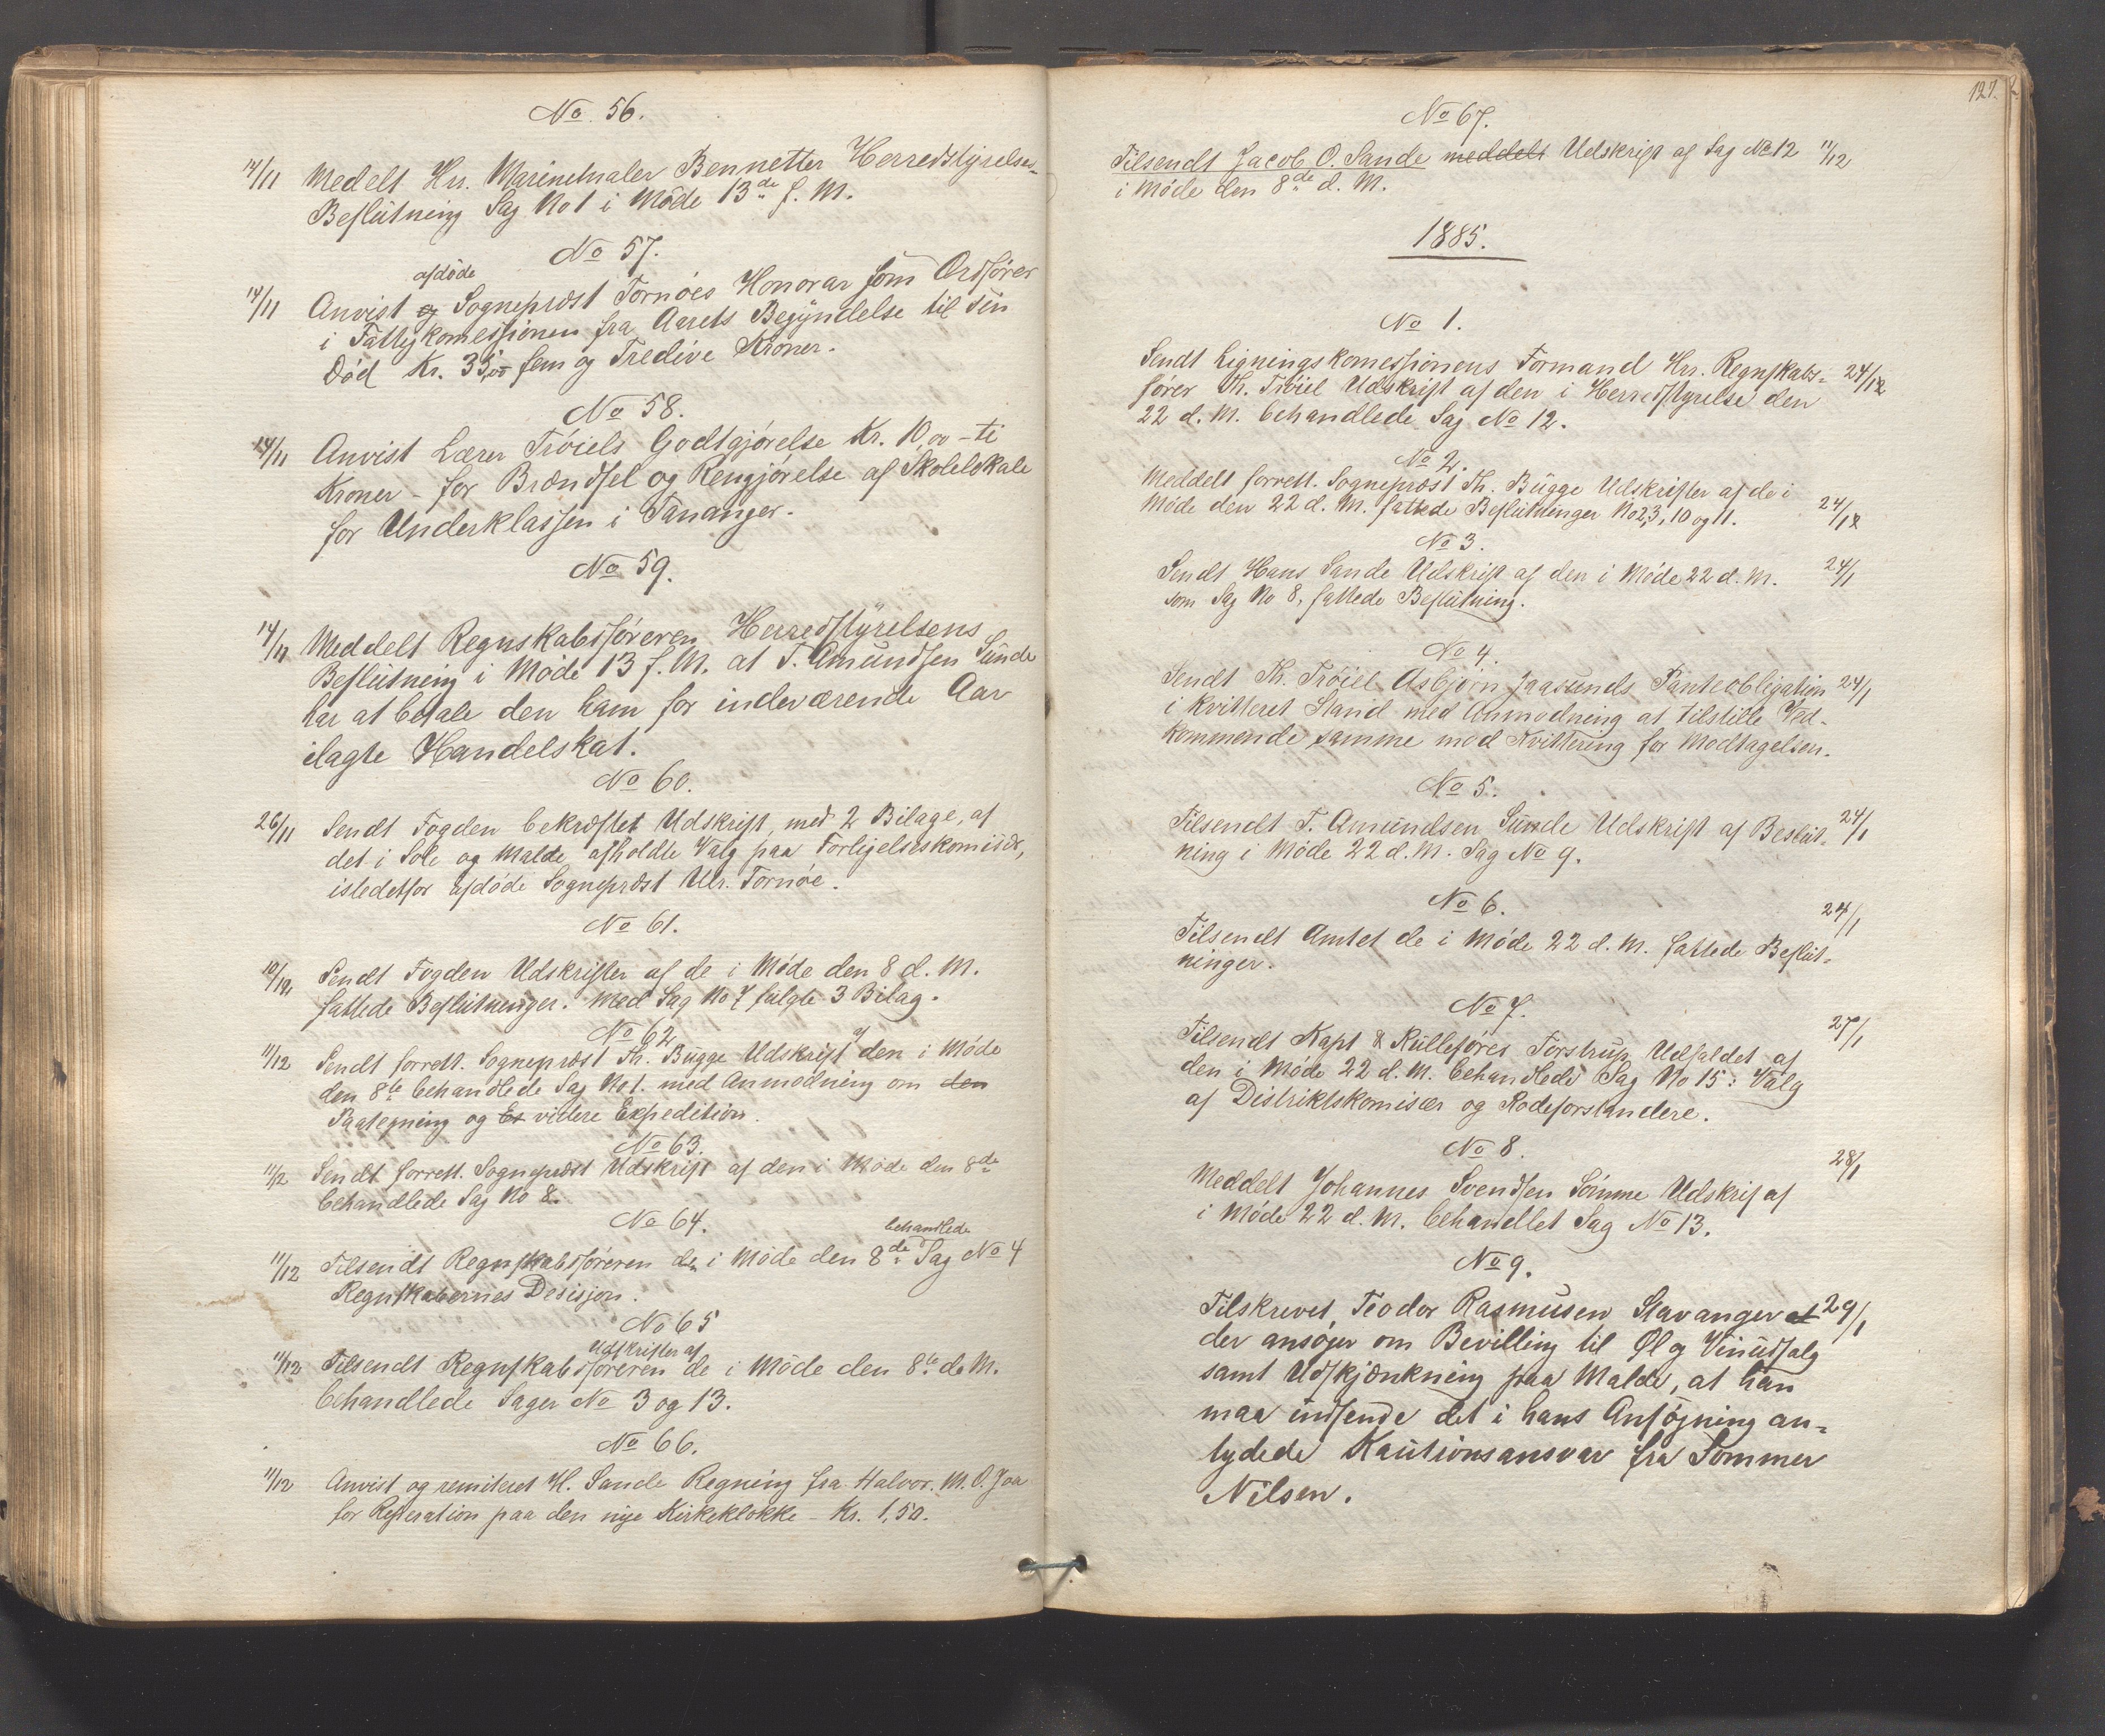 No. 56.
14/11 Medelt Hr. Marinemaler Bennetter Herredstyrelses-
Beslutning Sag No 1 i Møde 13de f. M.
No 57.
afdøde
14/11 Anvist og Sogneprøst Tornøes Honorar som Ordfører
i Fattigkomessionen fra Aarets Begyndelse til sin
Død Kr. 35,00 fem og Tredive Kroner.
No 58.
14/11 Anvist Lærer Trøiels Godtgjørelse Kr. 10,00 - ti
Kroner - for Brændsel og Rengjørelse af Skolelokale
for Underklassen i Tananger.
No 59.
14/11 Meddelt Regnskabsføreren Herredstyrelsens
Beslutning i Møde 13 f. M. at T. Amundsen Sunde
har at betale den ham for indeværende Aar
ilagte Handelskat.
No 60.
26/11 Sendt Fogden bekræftet Udskrift, med 2 Bilage, af
det i Sole og Malde afholdte Valg paa Forligelseskomisær,
istedetfor afdøde Sogneprøst Ulr. Tornøe.
No 61.
10/12 Sendt Fogden Udskrifter af de i Møde den 8 d. M.
fattede Beslutninger. Med Sag No 7 fulgte 3 Bilag.
No 62
af
11/12 Sendt forrett. Sogneprøst Th. Bugge Udskrift den i Møde
den 8de behandlede Sag No 1. med Anmodning om den
Paategning og Ex videre Expedition.
No 63.
11/12 Sendt forrett. Sogneprøst Udskrift af den i Møde den 8de
behandlede Sag No 8.
No 64.
behandlede
11/12 Tilsendt Regnskabsføreren den i Møde den 8de Sag No 4
Regnskabernes Desisjon.
No 65
Udskrifter af
11/12 Tilsendt Regnskabsføreren de i Møde den 8de ds M.
behandlede Sager No 3 og 13.
No 66.
11/12 Anvist og remiteret H. Sande Regning fra Halvor. M. O. Joa
for Reperation paa den nye Kirkeklokke - Kr. 1,50.
127.
No 67.
Tilsendt Jacob O. Sande meddelt Udskrift af Sag No 12 11/12
i Møde den 8de d. M.
1885.
No 1.
Sendt Ligningskomessionens Formand Hr. Regnskabs- 24/12
fører Th. Trøiel Udskrift af den i Herredstyrelse den
22 d. M. behandlede Sag No 12.
No 2.
Meddelt forrett. Sogneprøst Th. Bugge Udskrifter af de i
Møde den 22 d. M. fattede Beslutninger No 2, 3, 10 og 11. 24/12
No 3.
Sendt Hans Sande Udskrift af den i Møde 22 d. M. 24/1
som Sag No 8, fattede Beslutning.
No 4.
Sendt Th. Trøiel Asbjørn Jaasunds Panteobligation 24/1
i kvitteret Stand med Anmodning at tilstille Ved-
kommende samme mod Kvittering for Modtagelsen.
No 5.
Tilsendt T. Amundsen Sunde Udskrift af Beslut- 24/1
ning i Møde 22 d. M. Sag No 9.
No 6.
Tilsendt Amtet de i Møde 22 d. M. fattede Beslut- 24/1
ninger.
No 7.
Tilsendt Kapt & Rulleføres Torstrup Udfaldet af 27/1
den i Møde 22 d. M. behandlede Sag No 15: Valg
af Distriktskomisær og Rodeforstandere.
No 8.
Meddelt Johannes Svendsen Sømme Udskrif af 28/1
i Møde 22 d. M. behandlet Sag No 13.
No 9.
Tilskrevet, Teodor Rasmusen Stavanger at 29/1
der ansøger om Bevilling til Øl og Vinudsalg
samt Udskjænkning paa Malde, at han
maa indsende det i hans Ansøgning an-
tydede Kautionsansvar fra Sommer
Nilsen.